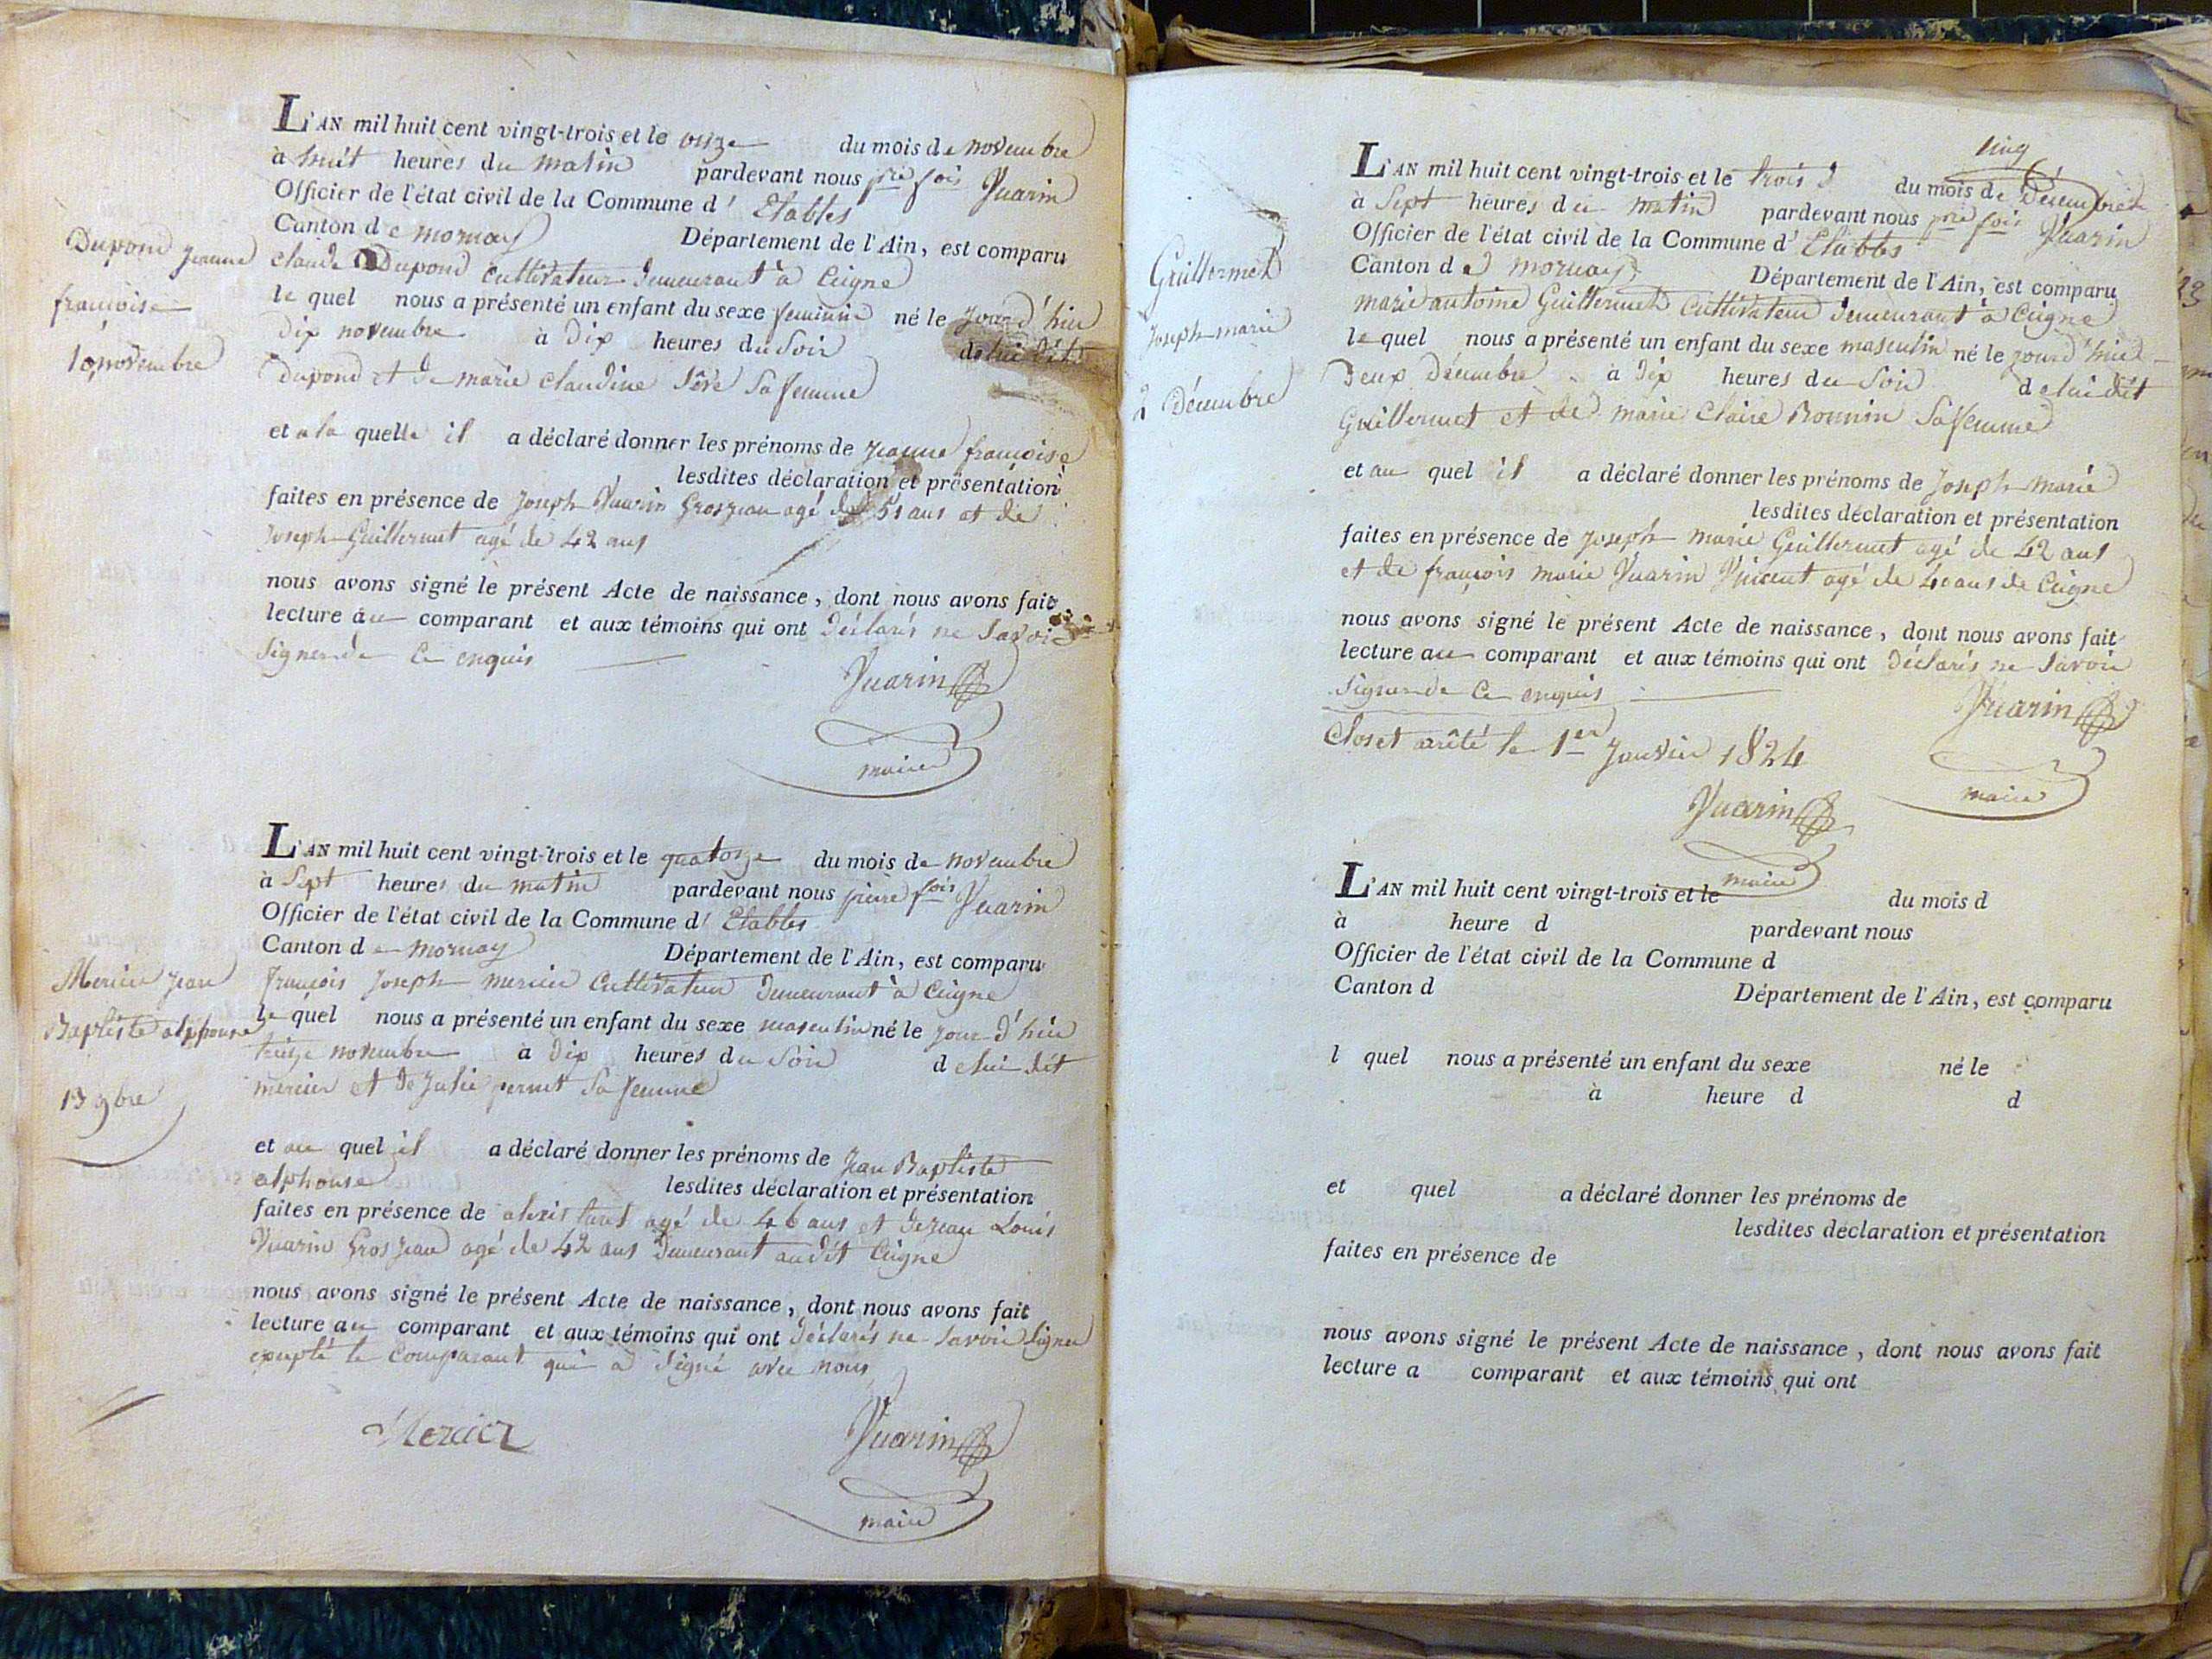 L'AN mil huit cent vingt-trois et le onze du mois de novembre
à huit heures du matin pardevant nous pre fois Vuarin
Officier de l'état civil de la Commune d' Etables
Canton de mornay Département de l'Ain, est comparu
claude Dupond cultivateur demeurant à Ceigne
le quel nous a présenté un enfant du sexe feminin né le jour d'hier
dix novembre à dix heures du soir de lui dit
Dupond et de marie claudine sa femme
et a la quelle il a déclaré donner les prénoms de jeanne françoise
lesdites déclaration et présentation
faites en présence de joseph Vuarin Grosjean agé de 51 ans et de
joseph Guillermet agé de 42 ans
nous avons signé le présent Acte de naissance, dont nous avons fait
lecture au comparant et aux témoins qui ont déclarés ne savoir
signer de ce enquis
Vuarin
maire
Dupond jeanne
françoise
10 novembre
L'AN mil huit cent vingt-trois et le quatorze du mois de novembre
à sept heures du matin pardevant nous pierre fois Vuarin
Officier de l'état civil de la Commune d' Etables
Canton de mornay Département de l'Ain, est comparu
françois joseph mercier cultivateur demeurant à Ceigne
le quel nous a présenté un enfant du sexe masculin né le jour d'hier
treize novembre à dix heures du soir de lui dit
mercier et de julie pernet sa femme
et au quel il a déclaré donner les prénoms de jean Baptiste
alphonse lesdites déclaration et présentation
faites en présence de alexis agé de 46 ans et de jean Louis
Vuarin Grosjean agé de 42 ans demeurant audit Ceigne
nous avons signé le présent Acte de naissance, dont nous avons fait
lecture au comparant et aux témoins qui ont déclarés ne savoir signer
exepté le comparant qui a signé avec nous
Mercier
Vuarin
maire
Mercier jean
Baptiste alphonse
13 9bre
L'AN mil huit cent vingt-trois et le trois du mois de Décembre
à sept heures du matin pardevant nous pre fois Vuarin
Officier de l'état civil de la Commune d' Etables
Canton de mornay Département de l'Ain, est comparu
marie antoine Guillermet cultivateur demeurant à Ceigne
le quel nous a présenté un enfant du sexe masculin né le jour d'hier
deux Décembre à dix heures du soir de lui dit
Guillermet et de marie claire sa femme
et au quel il a déclaré donner les prénoms de joseph marie
lesdites déclaration et présentation
faites en présence de joseph marie Guillermet agé de 42 ans
et de françois marie Vuarin Vincent agé de 40 ans de Ceigne
nous avons signé le présent Acte de naissance, dont nous avons fait
lecture au comparant et aux témoins qui ont déclarés ne savoir
signer de ce enquis
Vuarin
maire
Guillermet
joseph marie
2 Décembre
Clos et arrêté le 1er janvier 1824
Vuarin
maire
L'AN mil huit cent vingt-trois et le du mois d
à heure d pardevant nous
Officier de l'état civil de la Commune d
Canton d Département de l'Ain, est comparu
l quel nous a présenté un enfant du sexe né le
à heure d d
et quel a déclaré donner les prénoms de
lesdites déclaration et présentation
faites en présence de
nous avons signé le présent Acte de naissance, dont nous avons fait
lecture a comparant et aux témoins qui ont